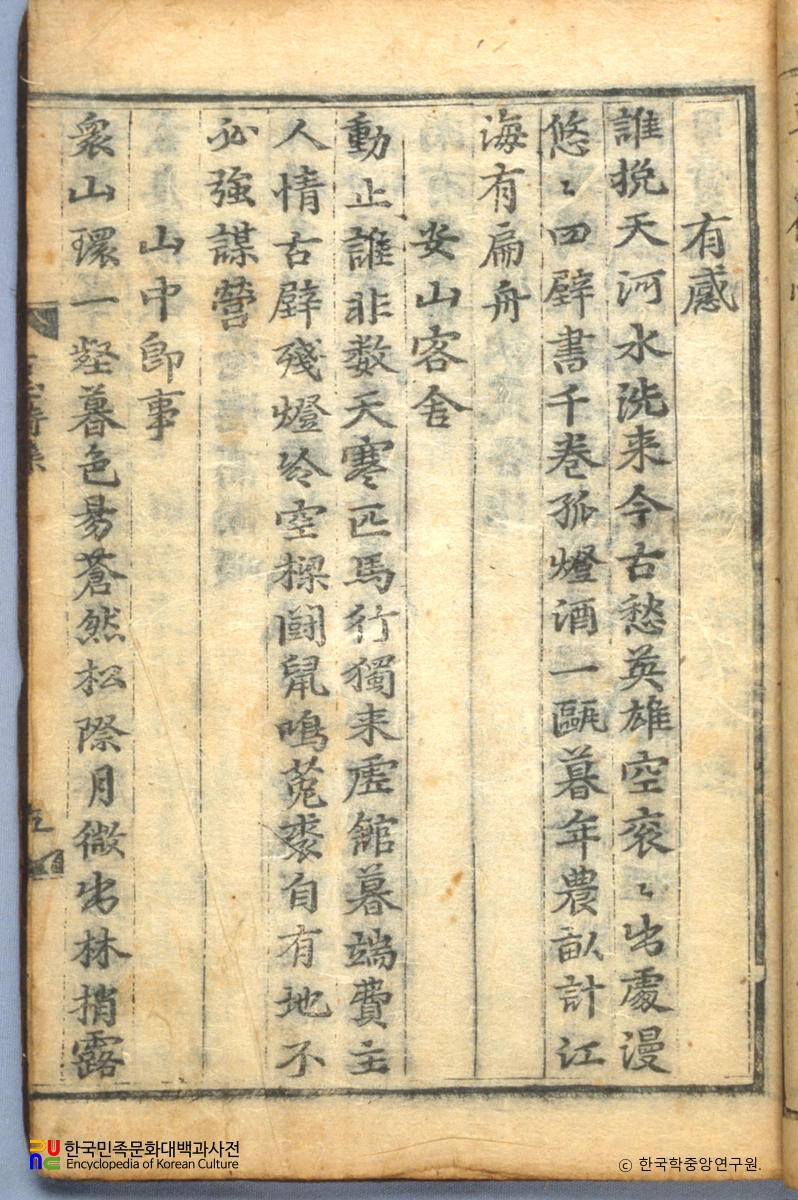 有感
誰挽天河水洗来今古愁英雄空衮〻出處漫
悠〻四壁書千卷孤燈酒一甌暮年農畝計江
海有扁舟
安山客舍
動止誰非数天寒匹馬行獨来虛館暮端費主
人情古壁殘燈冷空樑鬪鼠鳴菟裘自有地不
必強謀營
山中卽事
衆山環一壑暮色易蒼然松際月微出林梢露
한국민족문화대백과사전
Encyclopedia of Korean Culture
ⓒ 한국학중앙연구원.